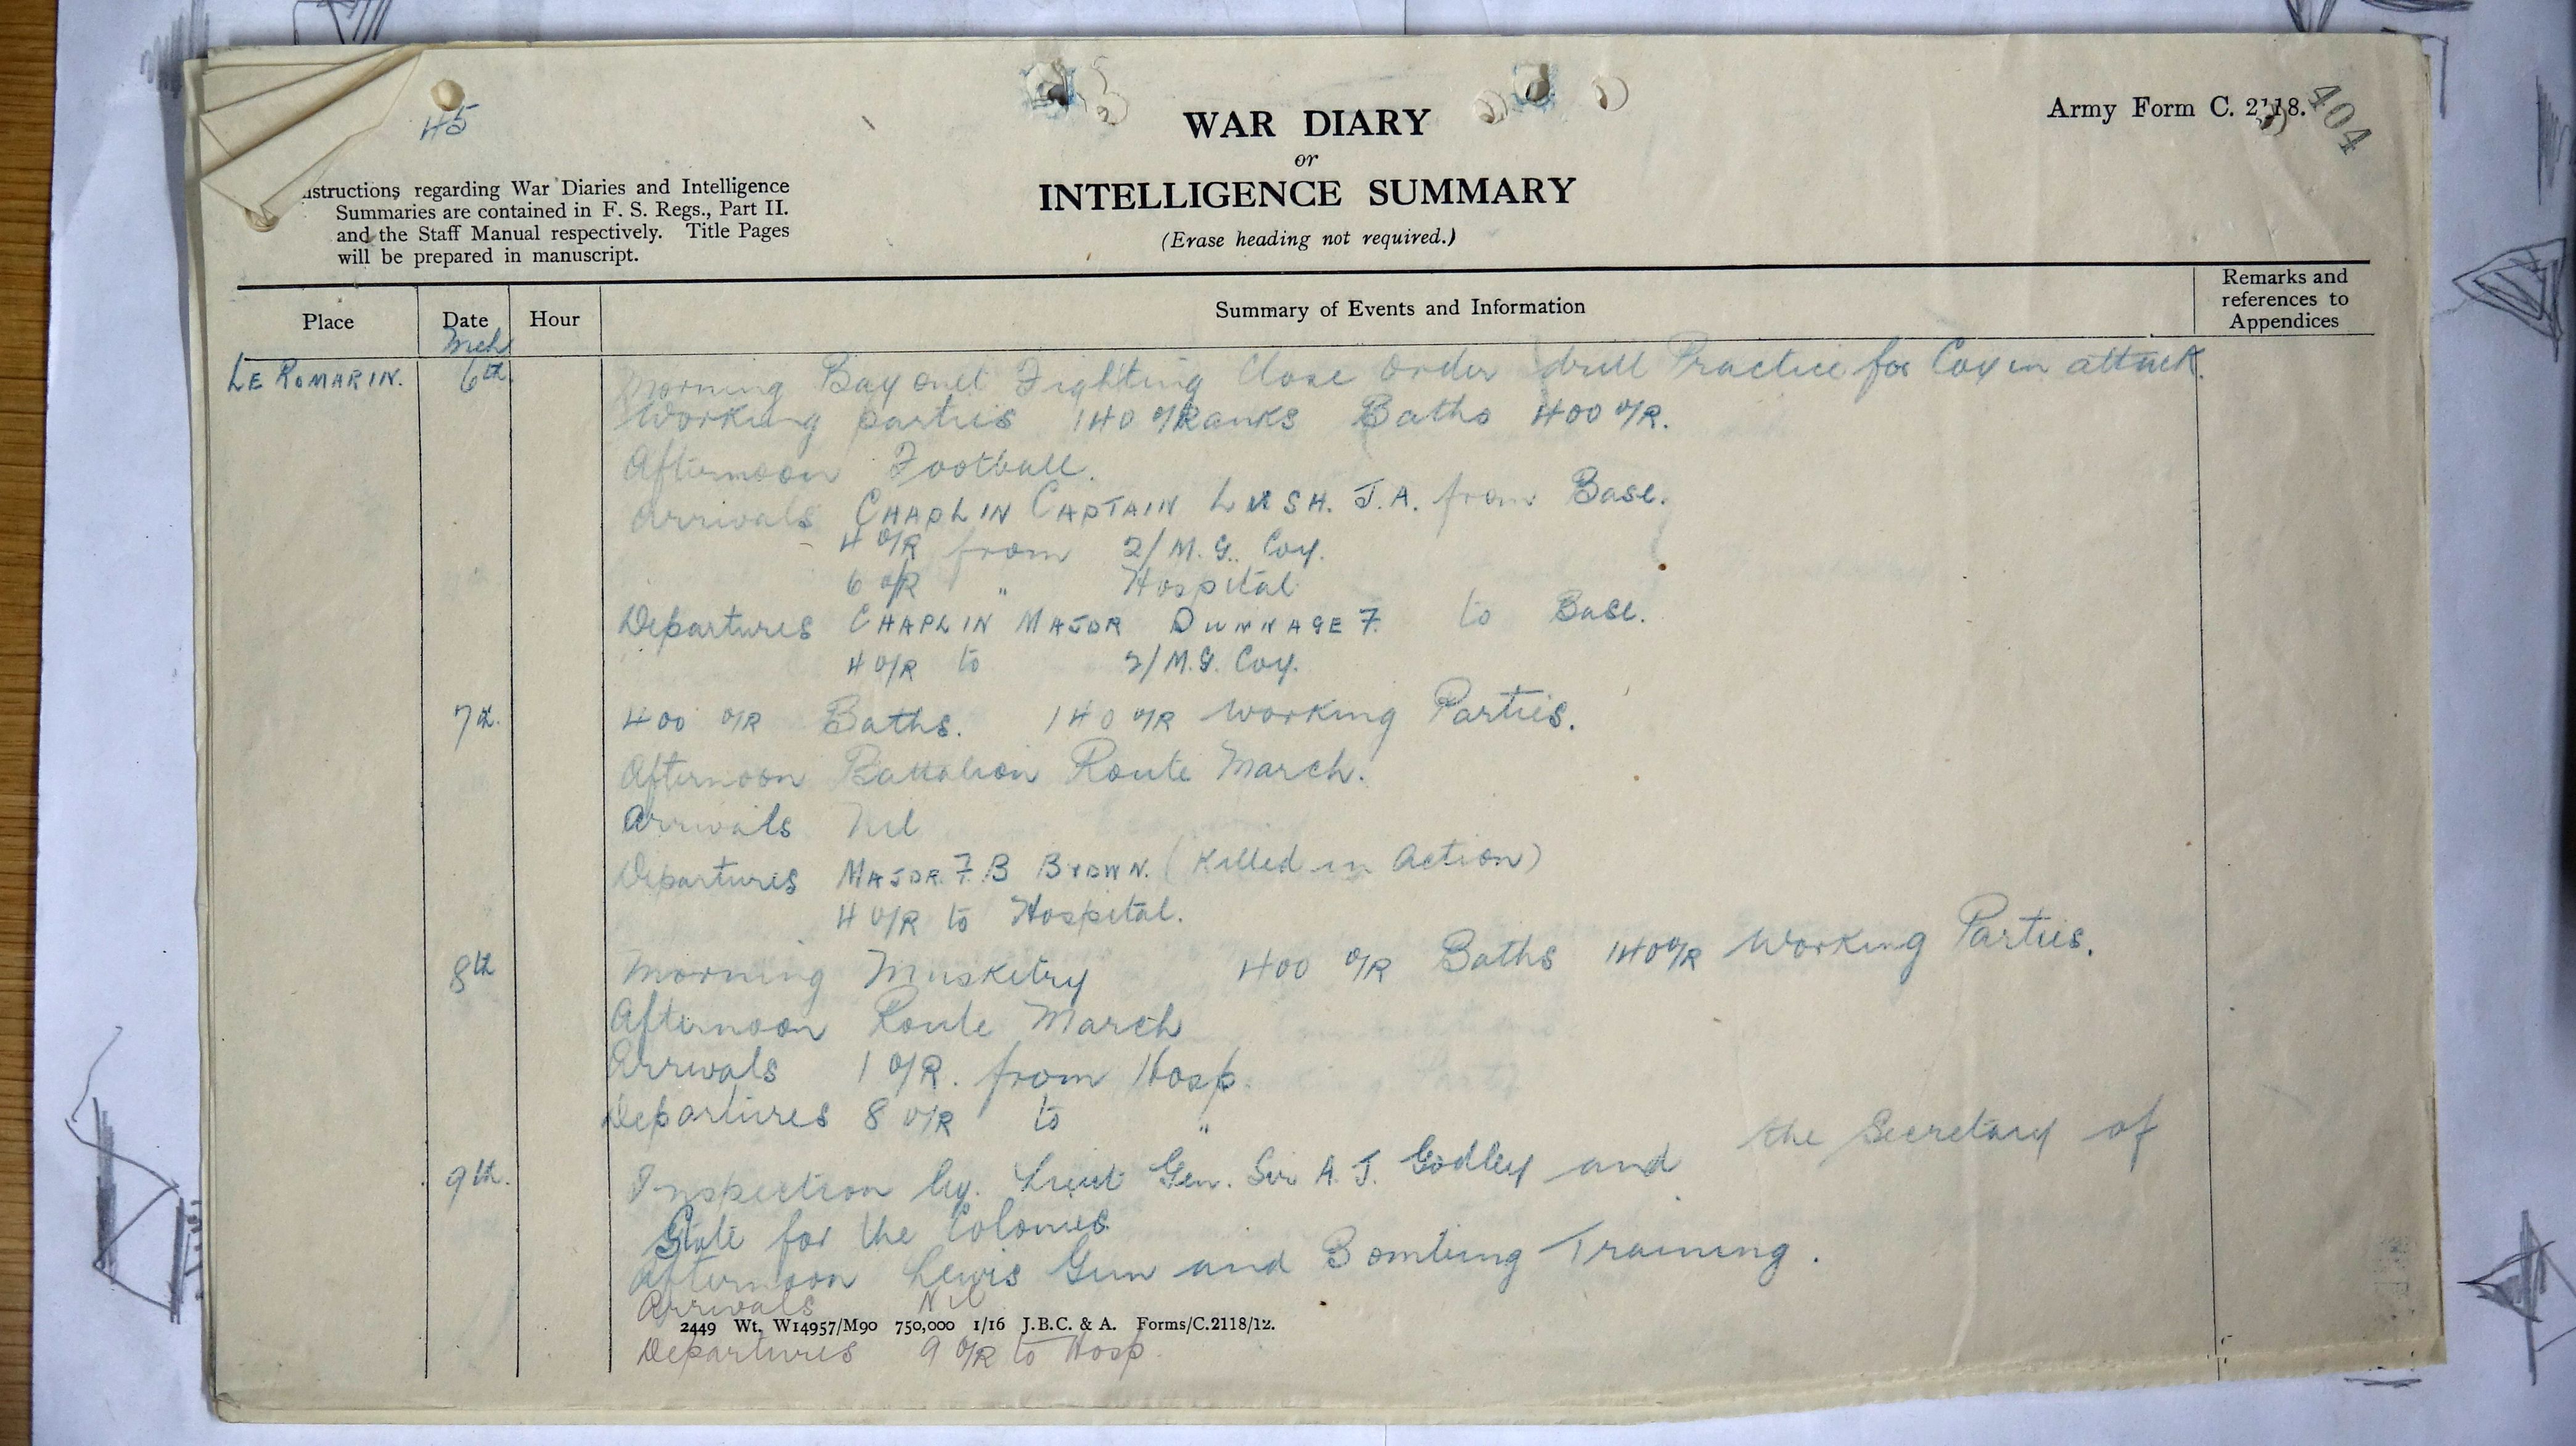 45
WAR DIARY
or
INTELLIGENCE SUMMARY
(Erase heading not required.)
Army Form C. 2118.
404
nstructions regarding War Diaries and Intelligence
Summaries are contained in F. S. Regs., Part II.
and the Staff Manual respectively. Title Pages
will be prepared in manuscript.
Place Date Hour Summary of Events and Information Remarks and references to Appendices
Mch
LE ROMARIN. 6th Morning Bayonet Fighting Close Order drill Practice for Coy in attack.
Working parties 140 O/Ranks Baths 400 O/R.
Afternoon Football.
Arrivals CHAPLIN CAPTAIN LUSH. J.A. from Base.
4 O/R from 2/M.G. Coy.
6 O/R " Hospital
Departures CHAPLIN MAJOR DUNNAGE F. to Base.
4 O/R to 2/M.G. Coy.
7th. 400 O/R Baths. 140 O/R Working Parties.
Afternoon Battalion Route March.
Arrivals Nil
Departures MAJOR. F. B BROWN. (Killed in Action)
4 O/R to Hospital.
8th Morning Musketry 400 O/R Baths 140 O/R Working Parties.
Afternoon Route March
Arrivals 1 O/R. from Hosp.
Departures 8 O/R to "
9th. Inspection by. Lieut Gen. Sir A. J. Godley and the Secretary of
State for the Colonies
Afternoon Lewis Gun and Bombing Training.
Arrivals Nil
2449 Wt. W14957/M90 750,000 1/16 J.B.C. & A. Forms/C.2118/12.
Departures 9 O/R to Hosp.